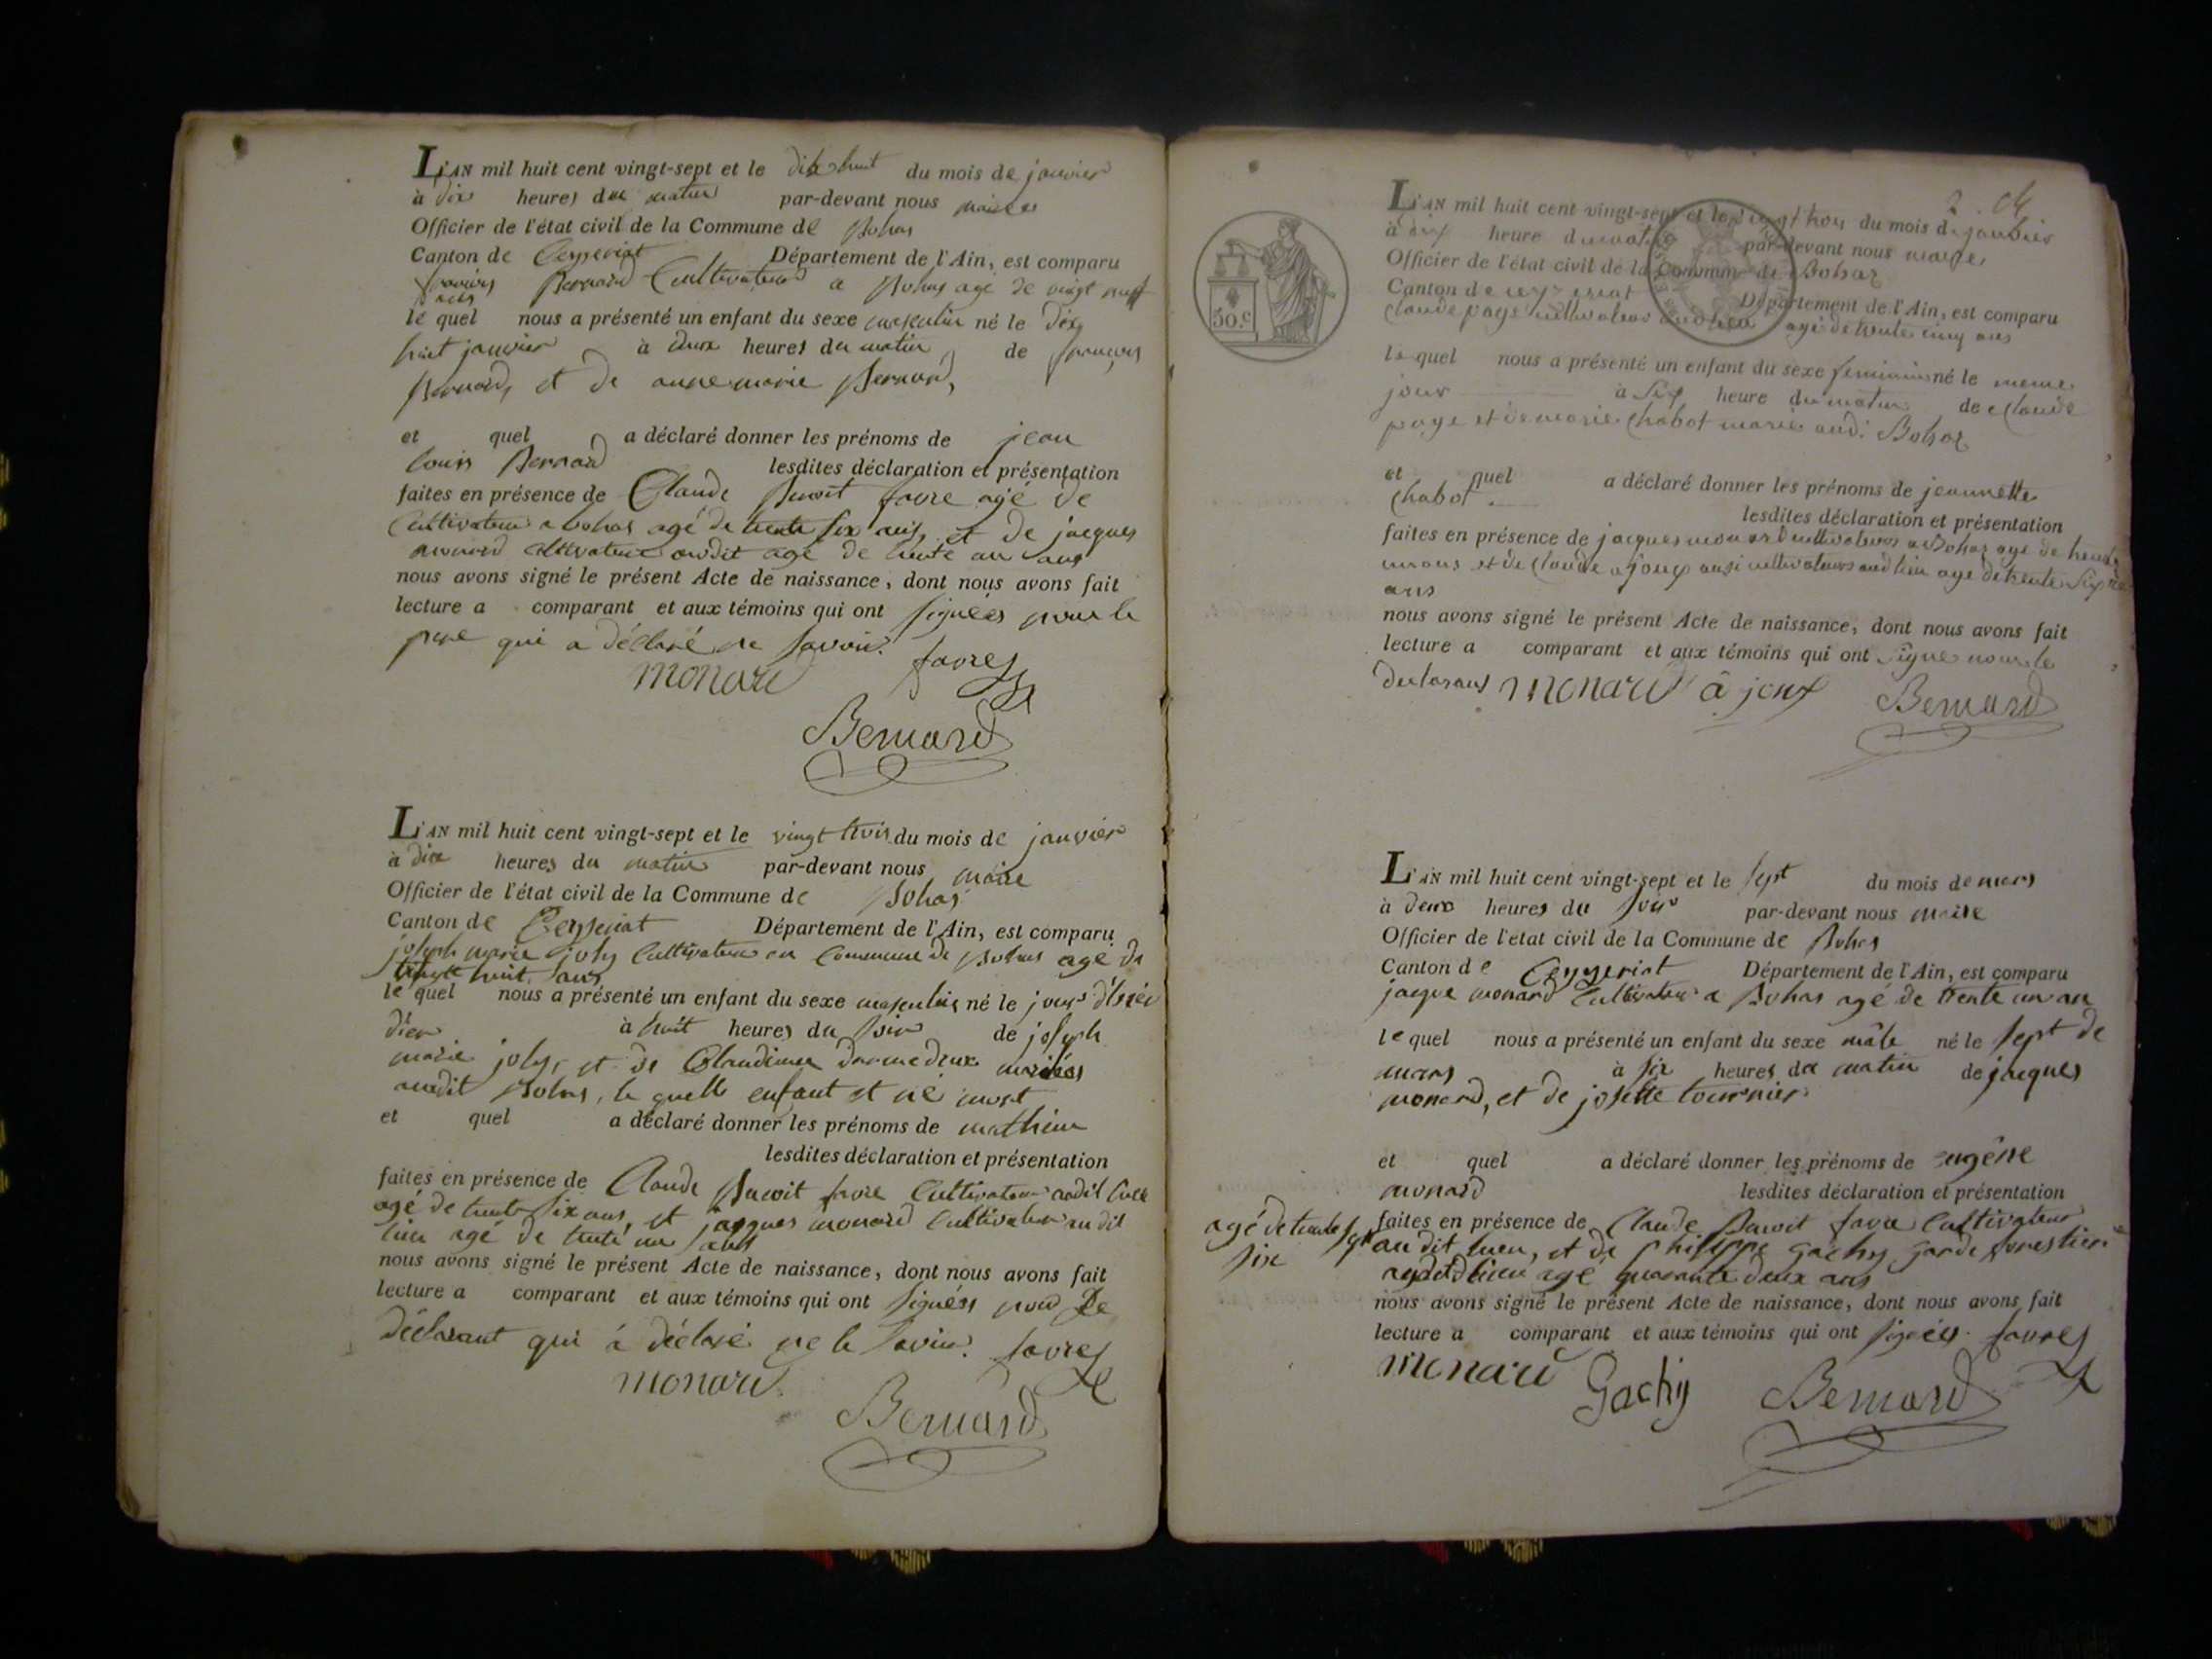 L'AN mil huit cent vingt-sept et le dix huit du mois de janvier
à dix heures du matin par-devant nous maire
Officier de l'état civil de la Commune de Bohas
Canton de Ceyzeriat Département de l'Ain, est comparu
françois Bernard Cultivateur a Bohas agé de vingt neuf
ans
le quel nous a présenté un enfant du sexe masculin né le dix
huit janvier à deux heures du matin, de françois
Bernard, et de anne marie Bernard,
et quel a déclaré donner les prénoms de jean
louis Bernard lesdites déclaration et présentation
faites en présence de Claude Benoit favre agé de
Cultivateur a bohas agé de trente six ans, et de jacques
monard cltivateur audit agé de trente un ans
nous avons signé le présent Acte de naissance, dont nous avons fait
lecture a comparant et aux témoins qui ont signées nom le
pere qui a déclaré ne savoir.
monard favre
Bernard
L'AN mil huit cent vingt-sept et le vingt trois du mois de janvier
à dix heures du matin par-devant nous maire
Officier de l'état civil de la Commune de Bohas
Canton de Ceyzeriat Département de l'Ain, est comparu
joseph marie joly Cultivateur en Commune de Bohas agé de
huit ans
le quel nous a présenté un enfant du sexe masculin né le jour
dier à huit heures du soir de joseph
marie joly, et de Claudine mariées
audit Bohas, le quelle enfant et né mort
et quel a déclaré donner les prénoms de mathieu
lesdites déclaration et présentation
faites en présence de Claude Benoit favre Cultivateur audit lieu
agé de trente six ans, et jacques monard Cultivateur au dit
lieu agé de trente un ans
nous avons signé le présent Acte de naissance, dont nous avons fait
lecture a comparant et aux témoins qui ont signées non le
déclarant qui à déclaré ne le savoir. favre
monard
Bernard
30.c
2.
L'AN mil huit cent vingt-sept et le vingt trois du mois de janvier
à dix heure du matin par-devant nous maire
Officier de l'état civil de la Commune de Bohas
Canton de ceyzeriat Département de l'Ain, est comparu
claude page cultivateur audlieu agé de trente cinq ans
le quel nous a présenté un enfant du sexe feminin né le meme
jour à six heure du matin de claude
page et de marie chabot marié aud. Bohas
et quel a déclaré donner les prénoms de jeannette
chabot. lesdites déclaration et présentation
faites en présence de jacques monard cultivateur a Bohas age de trente
un ans et de claude ajoux ausi cultivateur aud lieu age de trente six
ans
nous avons signé le présent Acte de naissance, dont nous avons fait
lecture a comparant et aux témoins qui ont signe non le
declarant monard à joux Bernard
L'AN mil huit cent vingt-sept et le sept du mois de mars
à deux heures du soir par-devant nous maire
Officier de l'état civil de la Commune de Bohas
Canton de Ceyzeriat Département de l'Ain, est comparu
jacque monard Cultivateur a Bohas agé de trente un an
le quel nous a présenté un enfant du sexe mâle né le sept de
mars à six heures du matin de jacques
monard, et de josette tournier
et quel a déclaré donner les prénoms de eugêne
monard lesdites déclaration et présentation
faites en présence de Claude Benoit favre Cultivateur
agé de trente
six
au dit lieu, et de Philippe Gachy garde forestier
audit lieu agé quarante deux ans
nous avons signé le présent Acte de naissance, dont nous avons fait
lecture a comparant et aux témoins qui ont signées. favre
monard Gachy Bernard